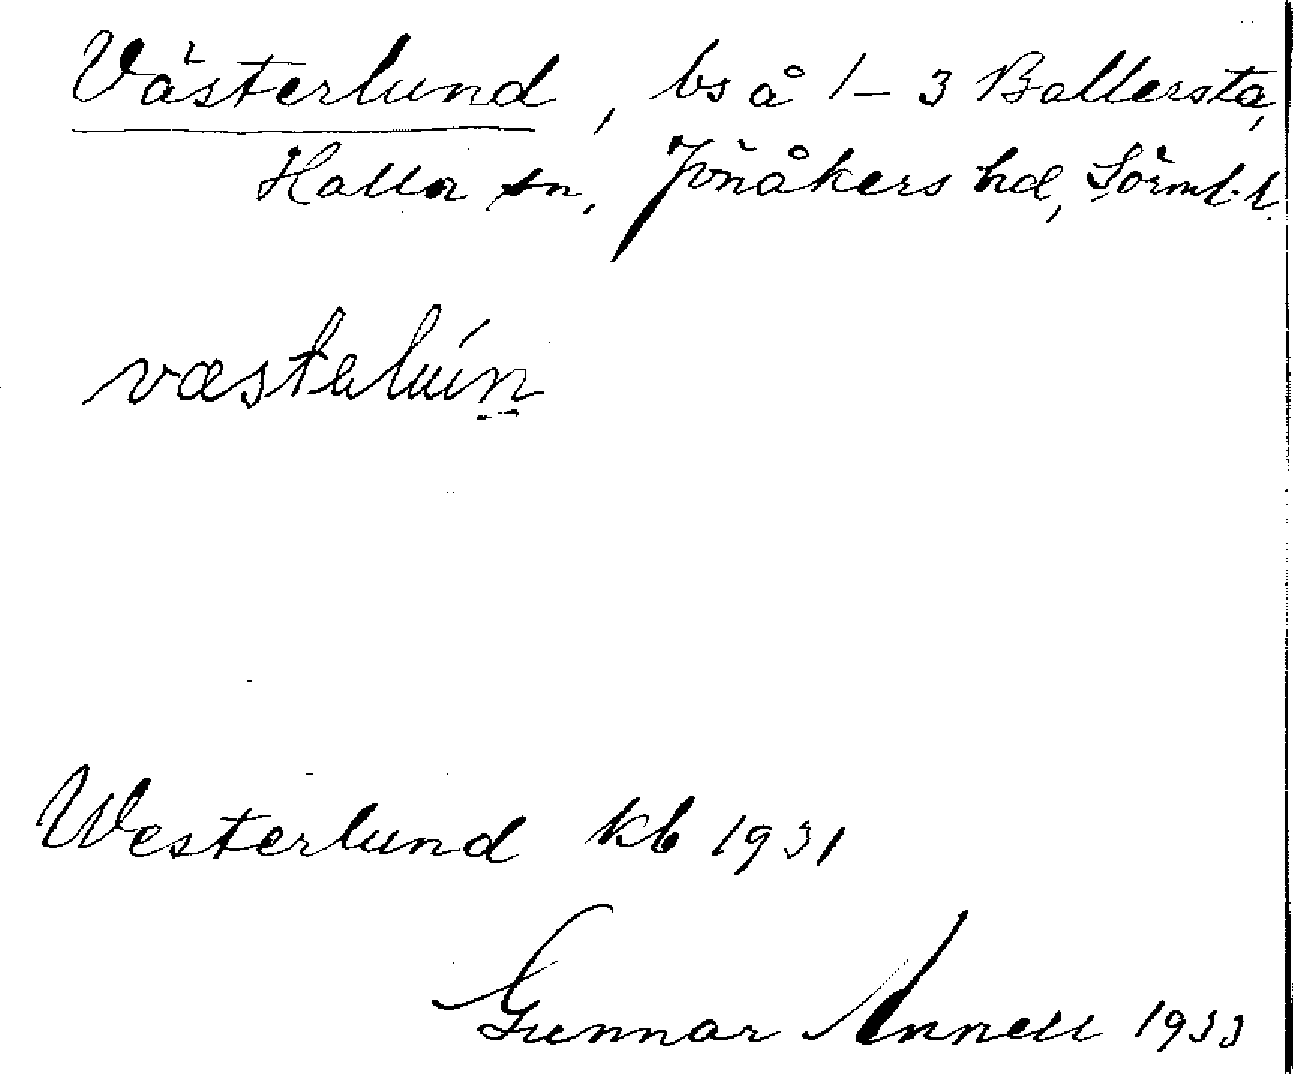 Västerlund, bs å 1–3 Ballersta,
Halla sn, Jönåkers hd, Sörml. l.
Westerlund kb 1931
Gunnar Annell 1933